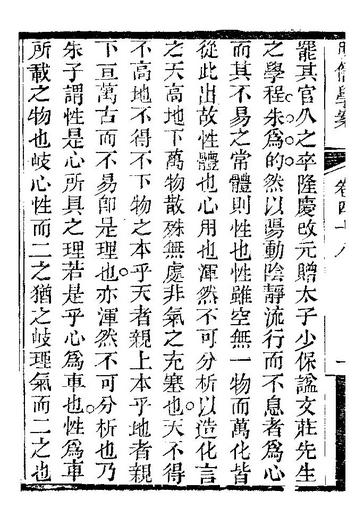 明儒學案 卷四十八 一
罷其官久之卒隆慶改元贈太子少保謚文莊先生
之學程朱為的然以陽動陰靜流行而不息者為心
而其不易之常體則性也性雖空無一物而萬化皆
從此出故性體也心用也渾然不可分析以造化言
之天高地下萬物散殊無處非氣之充塞也天不得
不高地不得不下物之本乎天者親上本乎地者親
下亘萬古而不易卽是理也亦渾然不可分析也乃
朱子謂性是心所具之理若是乎心為車也性為車
所載之物也岐心性而二之猶之岐理氣而二之也